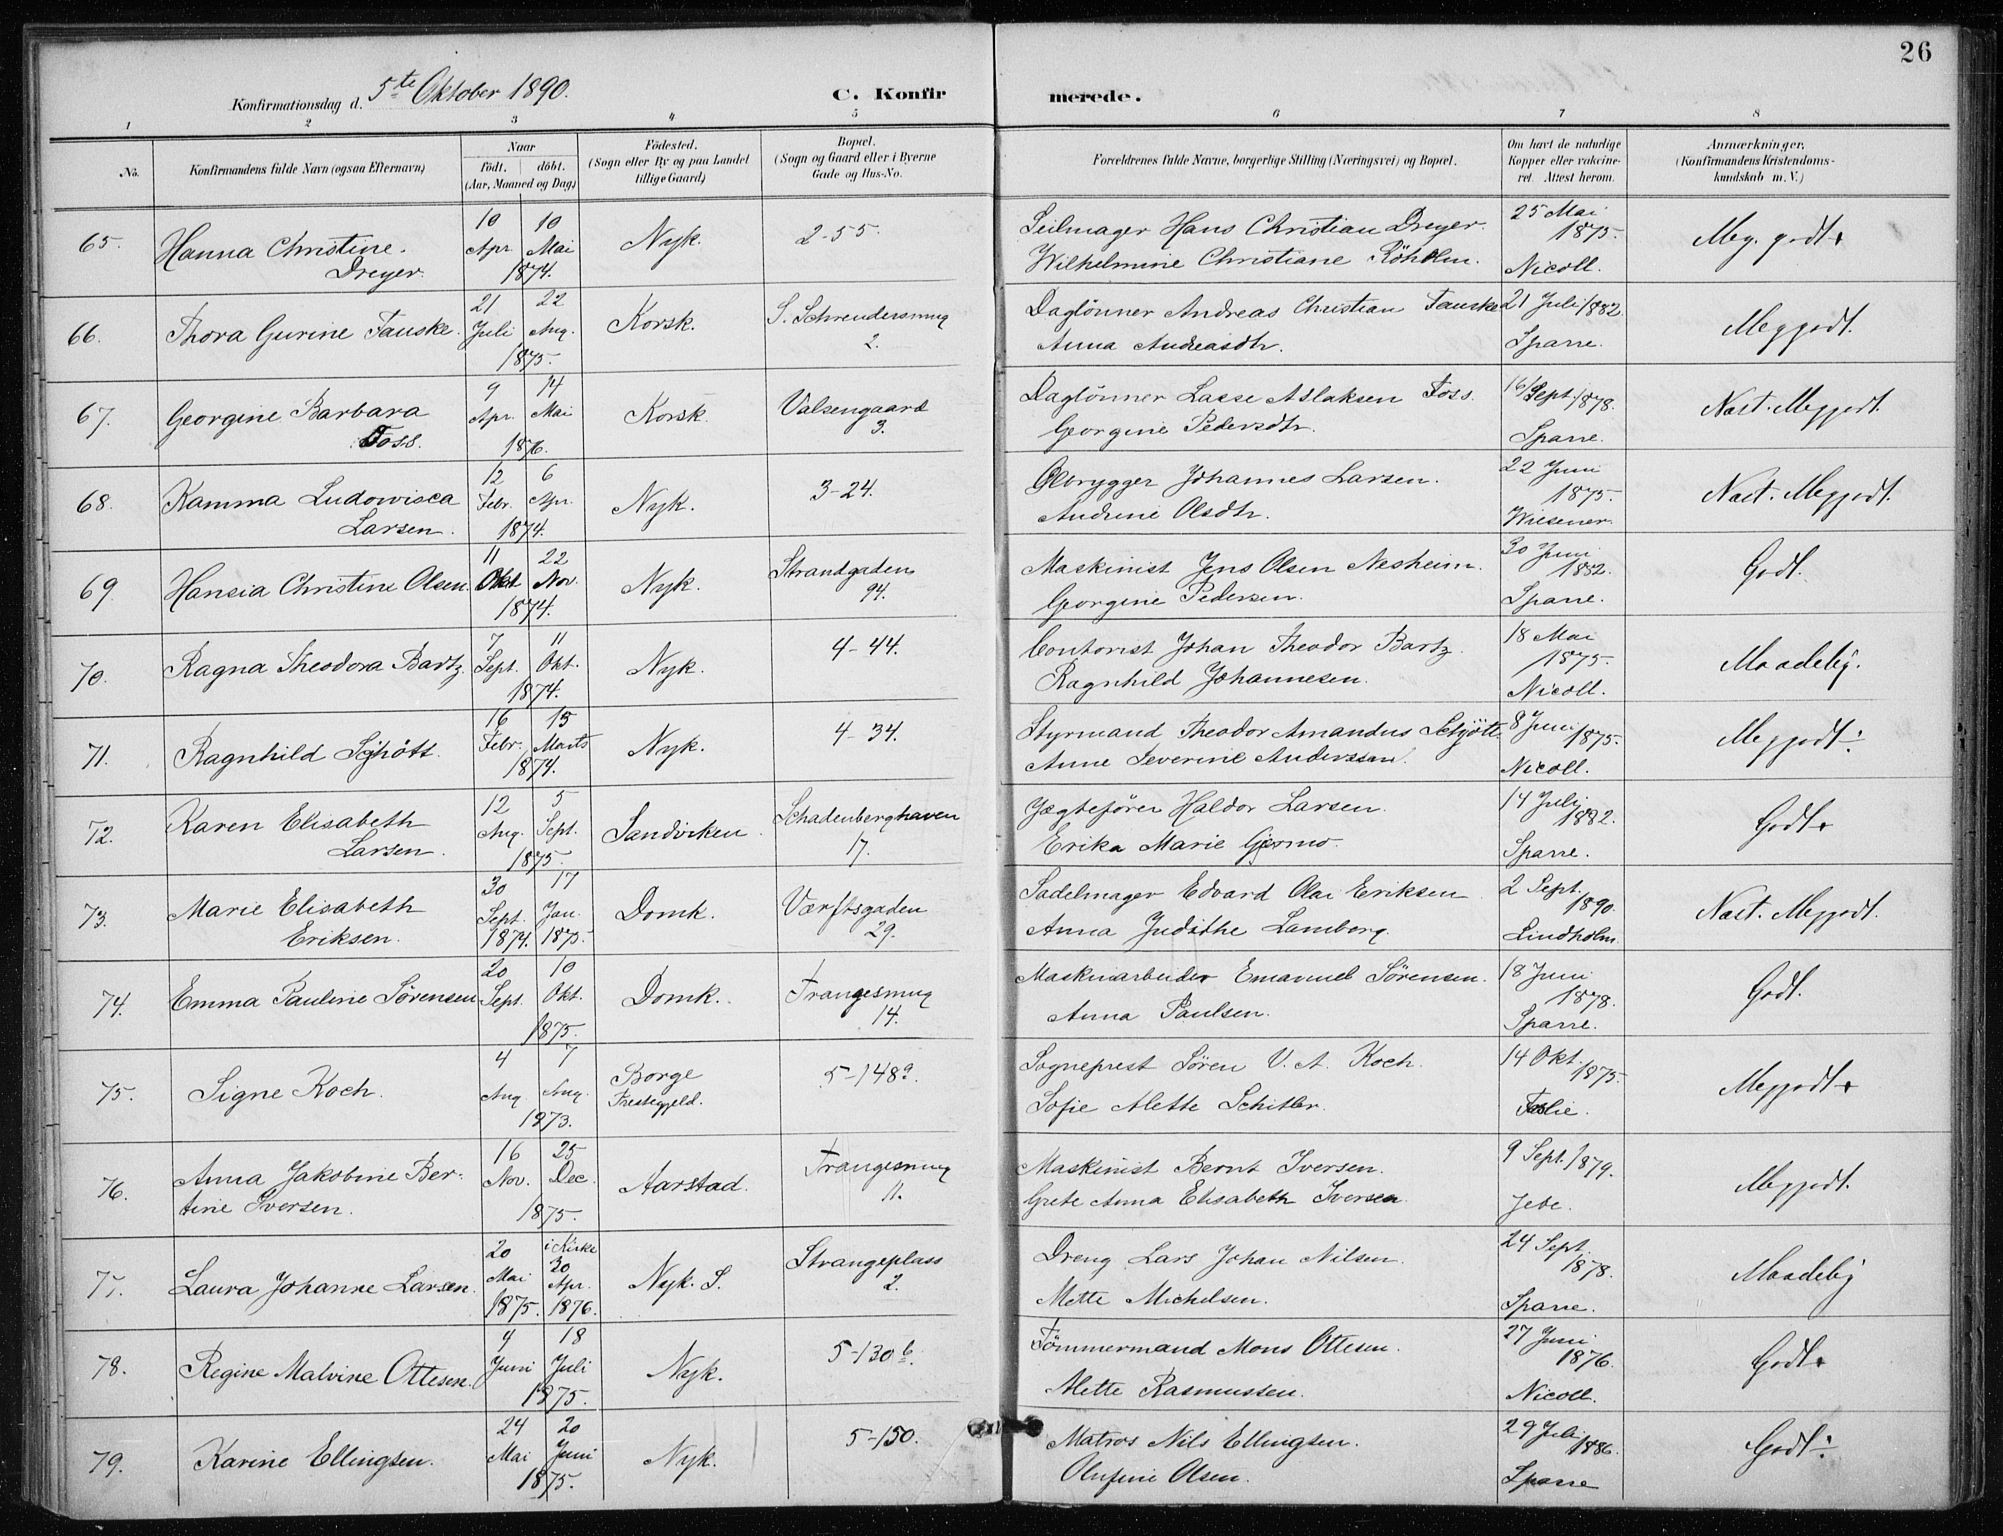 26
Konfirmationsdag d. 5te Oktober 1890.
C. Konfirmerede.
1 2 3 4 5 6 7 8
No.
Konfirmandens fulde Navn (ogsaa Efternavn)
Naar
födt. döbt.
(Aar, Maaned og Dag)
Födested.
(Sogn eller By og paa Landet
tillige Gaard)
Bopæl.
(Sogn og Gaard eller i Byerne
Gade og Hus-No.
Forældrenes fulde Navne, borgerlige Stilling (Næringsvei) og Bopæl.
Om havt de naturlige
Kopper eller vakcine-
ret. Attest herom.
Anmærkninger.
(Konfirmandens Kristendoms-
kundskab m. V.)
65. Hanna Christine Dreyer. 10 Apr. 10 Mai 1874. Nyk. 2-55.
Seilmager Hans Christian Dreyer.
Wilhelmine Christiane
25 Mai 1875. Nicoll. Meg. godt+
66. Thora Gurine Fauske. 21 Juli 22 Aug. 1875. Korsk. S. Schreudersmug 2.
Daglönner Andreas Christian Fauske
Anna Andreasdtr.
21 Juli 1882. Sparre. Meggodt.
67. Georgine Barbara Foss. 9 Apr. 14 Mai 1876. Korsk. Valsengaard 3.
Daglönner Lasse Aslaksen Foss.
Georgine Pedersdtr.
16/Sept. 1878. Sparre. Næst. Meggodt.
68. Kamma Ludowisca Larsen. 12 Febr. 6 Apr. 1874. Nyk. 3-24.
Ölbrygger Johannes Larsen.
Andrine Olsdtr.
22 Juni 1875. Wiesener. Næst. Meggodt.
69. Hansia Christine Olsen. 11 Okt. 22 Nov. 1874. Nyk. Strandgaden 94.
Maskinist Jens Olsen Nesheim.
Georgine Pedersen.
30 Juni 1882. Sparre. Godt.
70. Ragna Theodora Bartz. 7 Sept. 11 Okt. 1874. Nyk. 4-44.
Contorist Johan Theodor Bartz.
Ragnhild Johannesen.
18 Mai 1875. Nicoll. Maadelig.
71. Ragnhild Schött. 16 Febr. 15 Marts 1874. Nyk. 4-34.
Styrmand Theodor Amandus Schjött.
Anne Severine Anderssen.
8 Juni 1875. Nicoll. Meggodt÷
72. Karen Elisabeth Larsen. 12 Aug. 5 Sept. 1875. Sandviken. Schadenberghaven 17.
Jægtefören Haldor Larsen.
Erika Marie Gjermo.
14 Juli 1882. Sparre. Godt+
73. Marie Elisabeth Eriksen. 30 Sept. 1874. 17 Jan. 1875. Domk. Værftsgaden 29.
Sadelmager Edvard Olai Eriksen.
Anna Judithe Lamberg.
2 Sept. 1890. Lindholm. Næst. Meggodt.
74. Emma Pauline Sörensen 20 Sept. 10 Okt. 1875. Domk. Trangesmug 14.
Maskinarbeider Emanuel Sörensen.
Anna Paulsen.
18 Juni 1878. Sparre. Godt.
75. Signe Koch. 4 Aug. 7 Aug. 1873. Borge Prestegjeld. 5-148a.
Sogneprest Sören V. A. Koch.
Sofie Alette Schitler.
14 Okt. 1875. Meggodt+
76. Anna Jakobine Ber-
tine Iversen. 16 Nov. 25 Dec. 1875. Aarstad. Trangesmug 11.
Maskinist Bernt Iversen.
Grete Anna Elisabeth Iversen.
9 Sept. 1879. Jebe. Meggodt.
77. Laura Johanne Larsen. 20 Mai 1875. i Kirke 30 Apr. 1876. Nyk. S. Strangeplass 2.
Dreng Lars Johan Nilsen.
Mette Michelsen.
24 Sept. 1878. Sparre. Maadelig
78. Regine Malvine Ottesen. 4 Juni 18 Juli 1875. Nyk. 5-130b.
Tömmermand Mons Ottesen.
Mette Rasmussen.
27 Juni 1876. Nicoll. Godt+
79. Karine Ellingsen. 24 Mai 20 Juni 1875. Nyk. 5-150.
Matros Nils Ellingsen.
Olufine Olsen.
29 Juli 1886. Sparre Godt÷